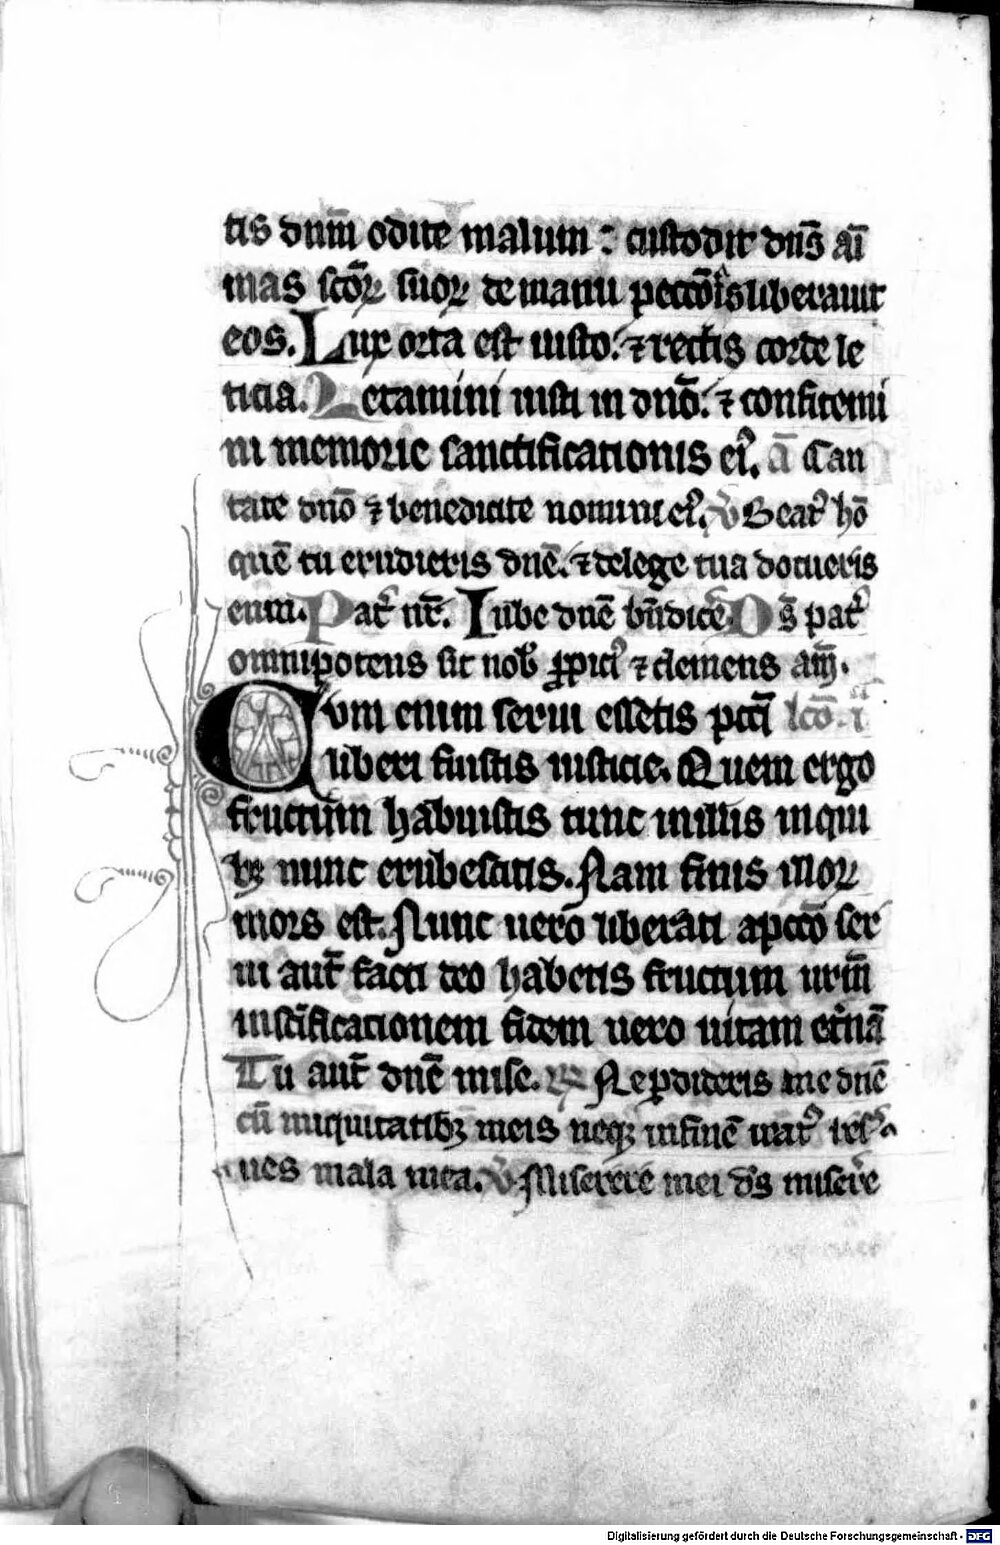 tis dnm̄ odite malum : custodit dns̄ ai̅
mas sc̄oꝝ suoꝝ de manu pecc̄oris liberauit
eos. Lux orta est iusto. ⁊ rectis corde le
ticia. Letamini iusti in dn̄o. ⁊ confitemi
ni memorie sanctificationis eiꝰ. a̅ Can
tate dn̄o ⁊ benedicite nomini eiꝰ. v̄ Beatꝰ ho̅
que̅ tu erudieris dn̄e. ⁊ de lege tua docueris
eum. Pat̉ nr̄. Iube dn̄e bn̄dice̅ Ds̄ pat̉
omnipotens sit nob̉ ꝓpiciꝰ ⁊ clemens am̄.
Cvm enim serui essetis pcc̄i lc̄o. i
liberi fuistis iusticie. Quem ergo
fructum habuistis tunc in illis in qui
bꝫ nunc erubescitis. Nam finis illoꝝ
mors est. Nunc uero liberati a pcc̄o ser
ui aut̄ facti deo habetis fructum ur̄m
in sc̄ificationem finem uero uitam et̉na̅
Tu aut̄ dn̄e mise. ꝶ Ne ꝑdideris me dn̄e
cu̅ iniquitatibꝫ meis neqꝫ in fine̅ iratꝰ res̉
ues mala mea. v̄ Miserere mei ds̄ misere
Digitalisierung gefördert durch die Deutsche Forschungsgemeinschaft - DFG